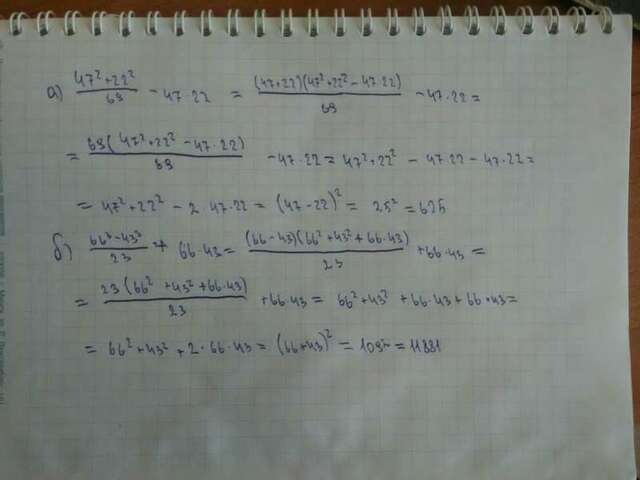 а) (47² + 22²)/69 − 47·22 = (47+22)(47² + 22² − 47·22)/69 − 47·22 =
= 69(47² + 22² − 47·22)/69 − 47·22 = 47² + 22² − 47·22 − 47·22 =
= 47² + 22² − 2·47·22 = (47 − 22)² = 25² = 625
б) (66³ − 43³)/23 + 66·43 = (66 − 43)(66² + 43² + 66·43)/23 + 66·43 =
= 23(66² + 43² + 66·43)/23 + 66·43 = 66² + 43² + 66·43 + 66·43 =
= 66² + 43² + 2·66·43 = (66+43)² = 109² = 11881